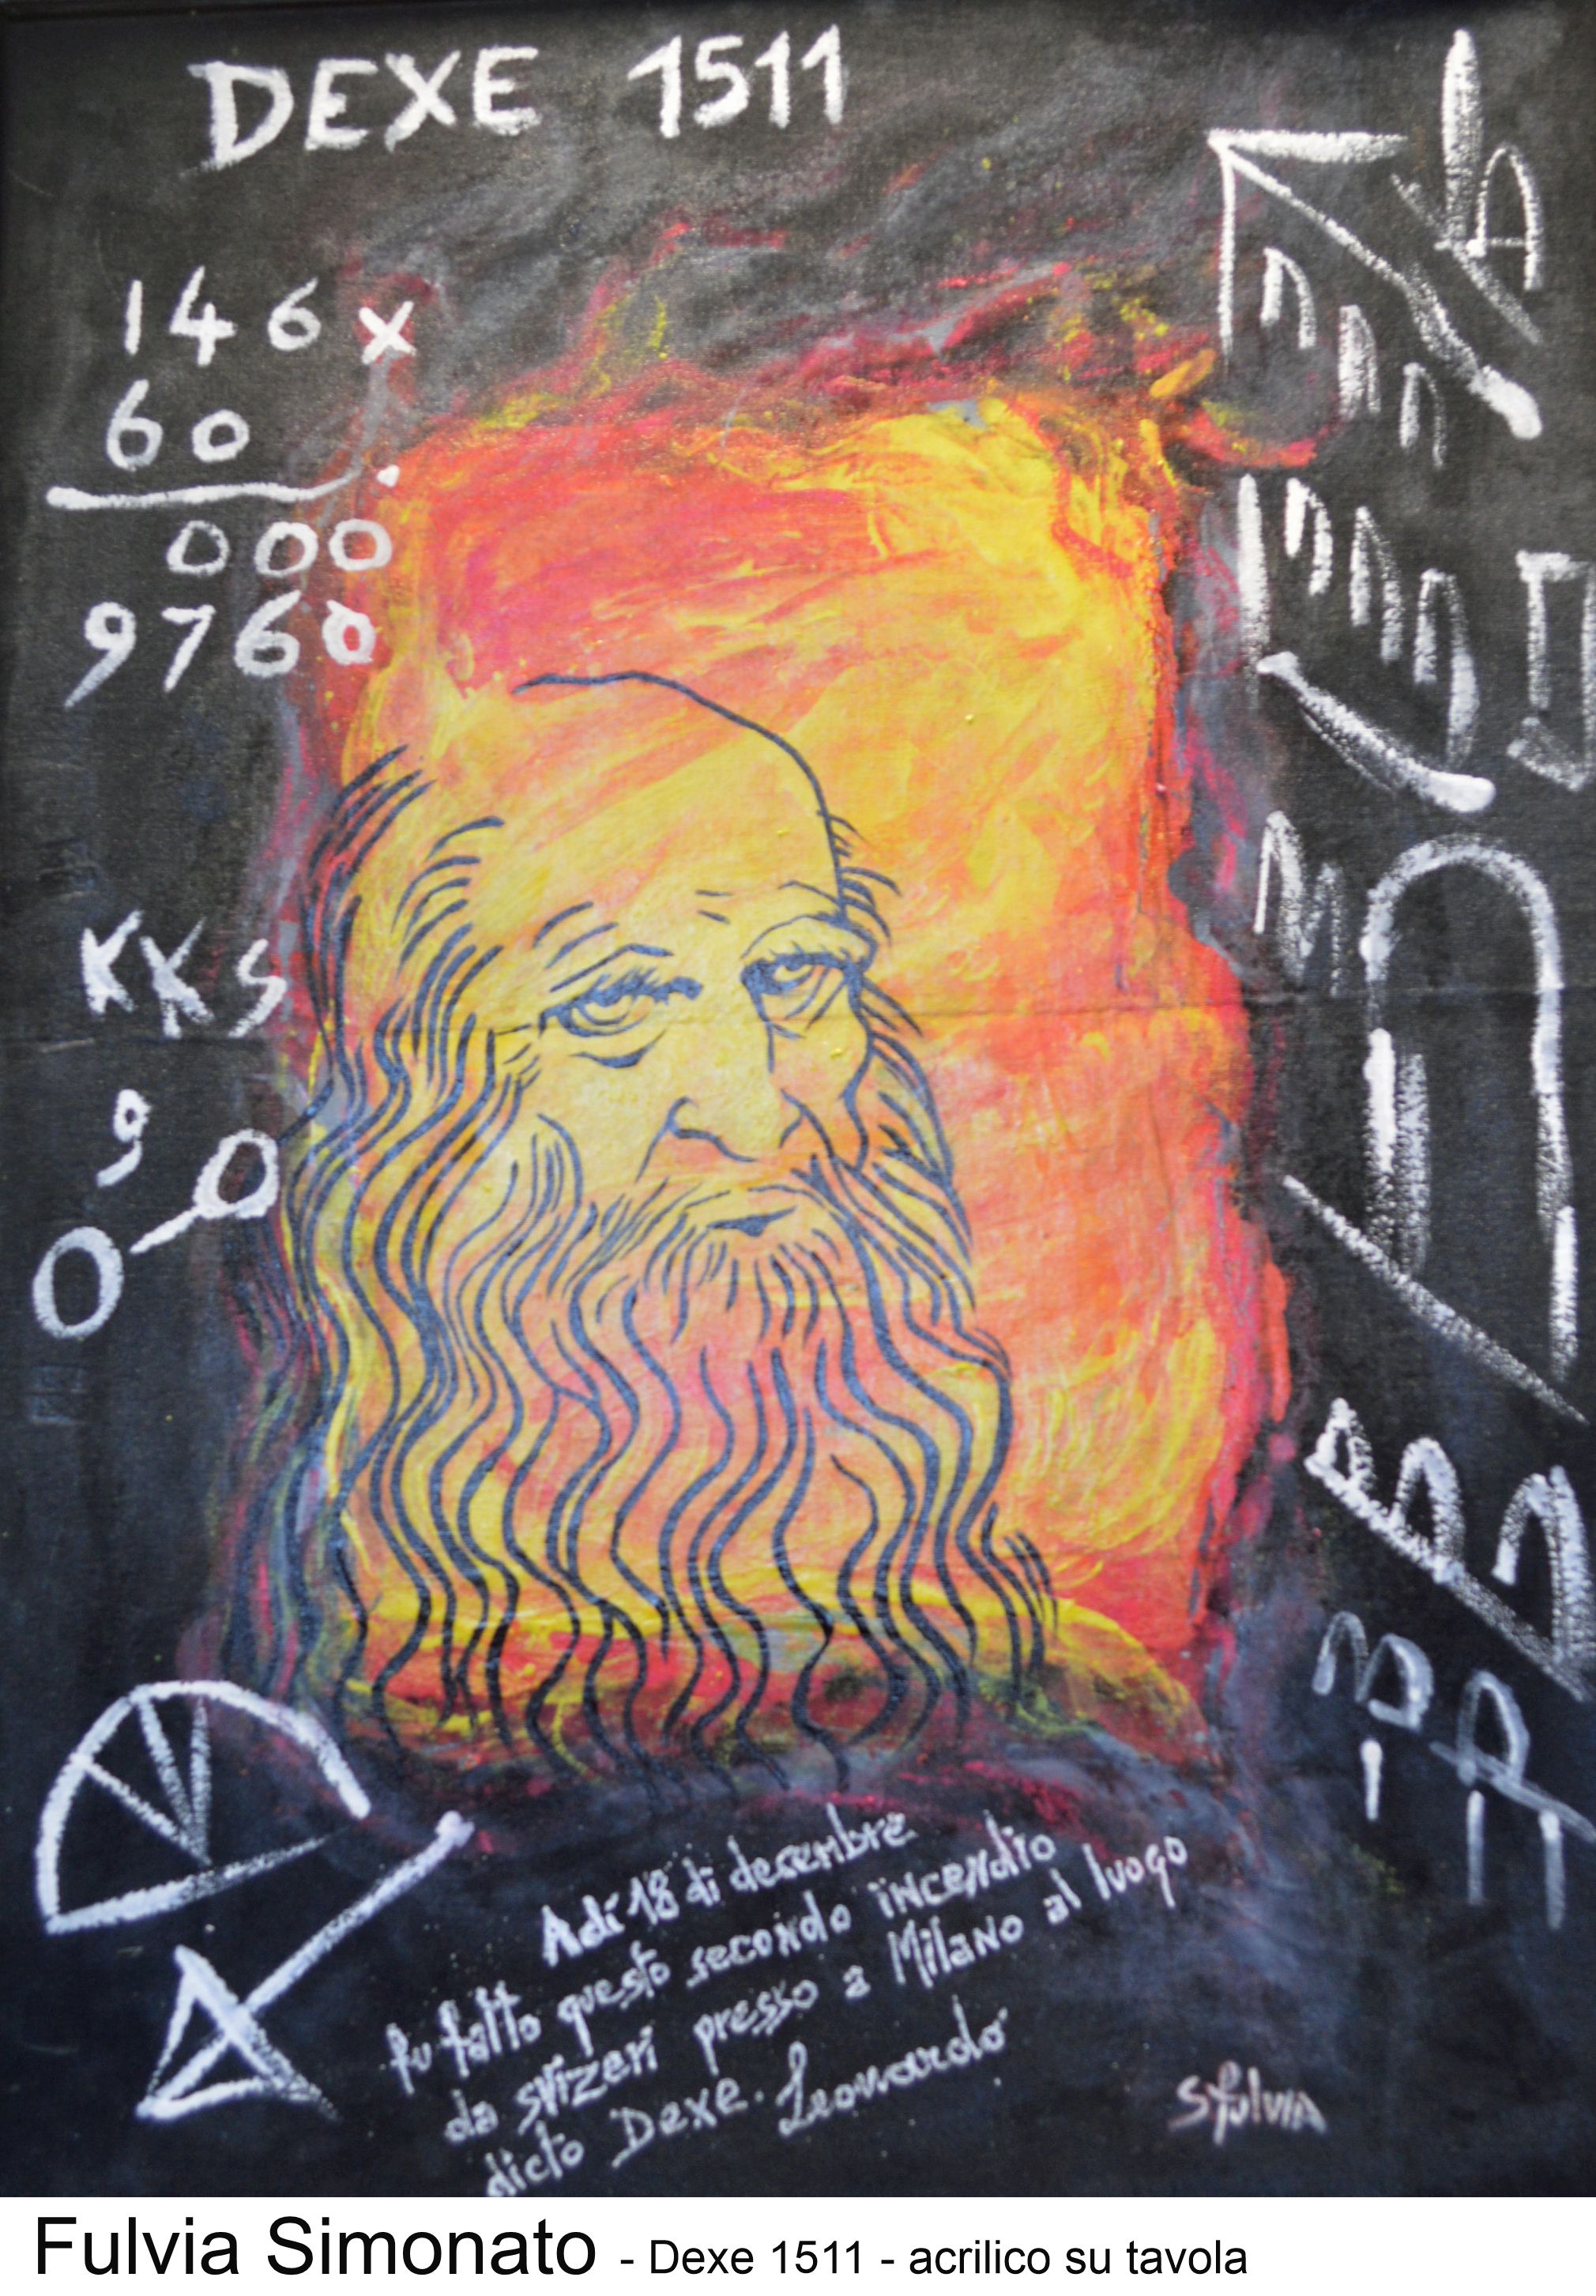 DEXE 1511
146 x
60
000
9760
KKS
9
Adí 18 di decembre
fu fatto questo secondo incendio
da svizeri presso a Milano al luogo
dicto Dexe. Leonardo
Sfulvia
Fulvia Simonato - Dexe 1511 - acrilico su tavola